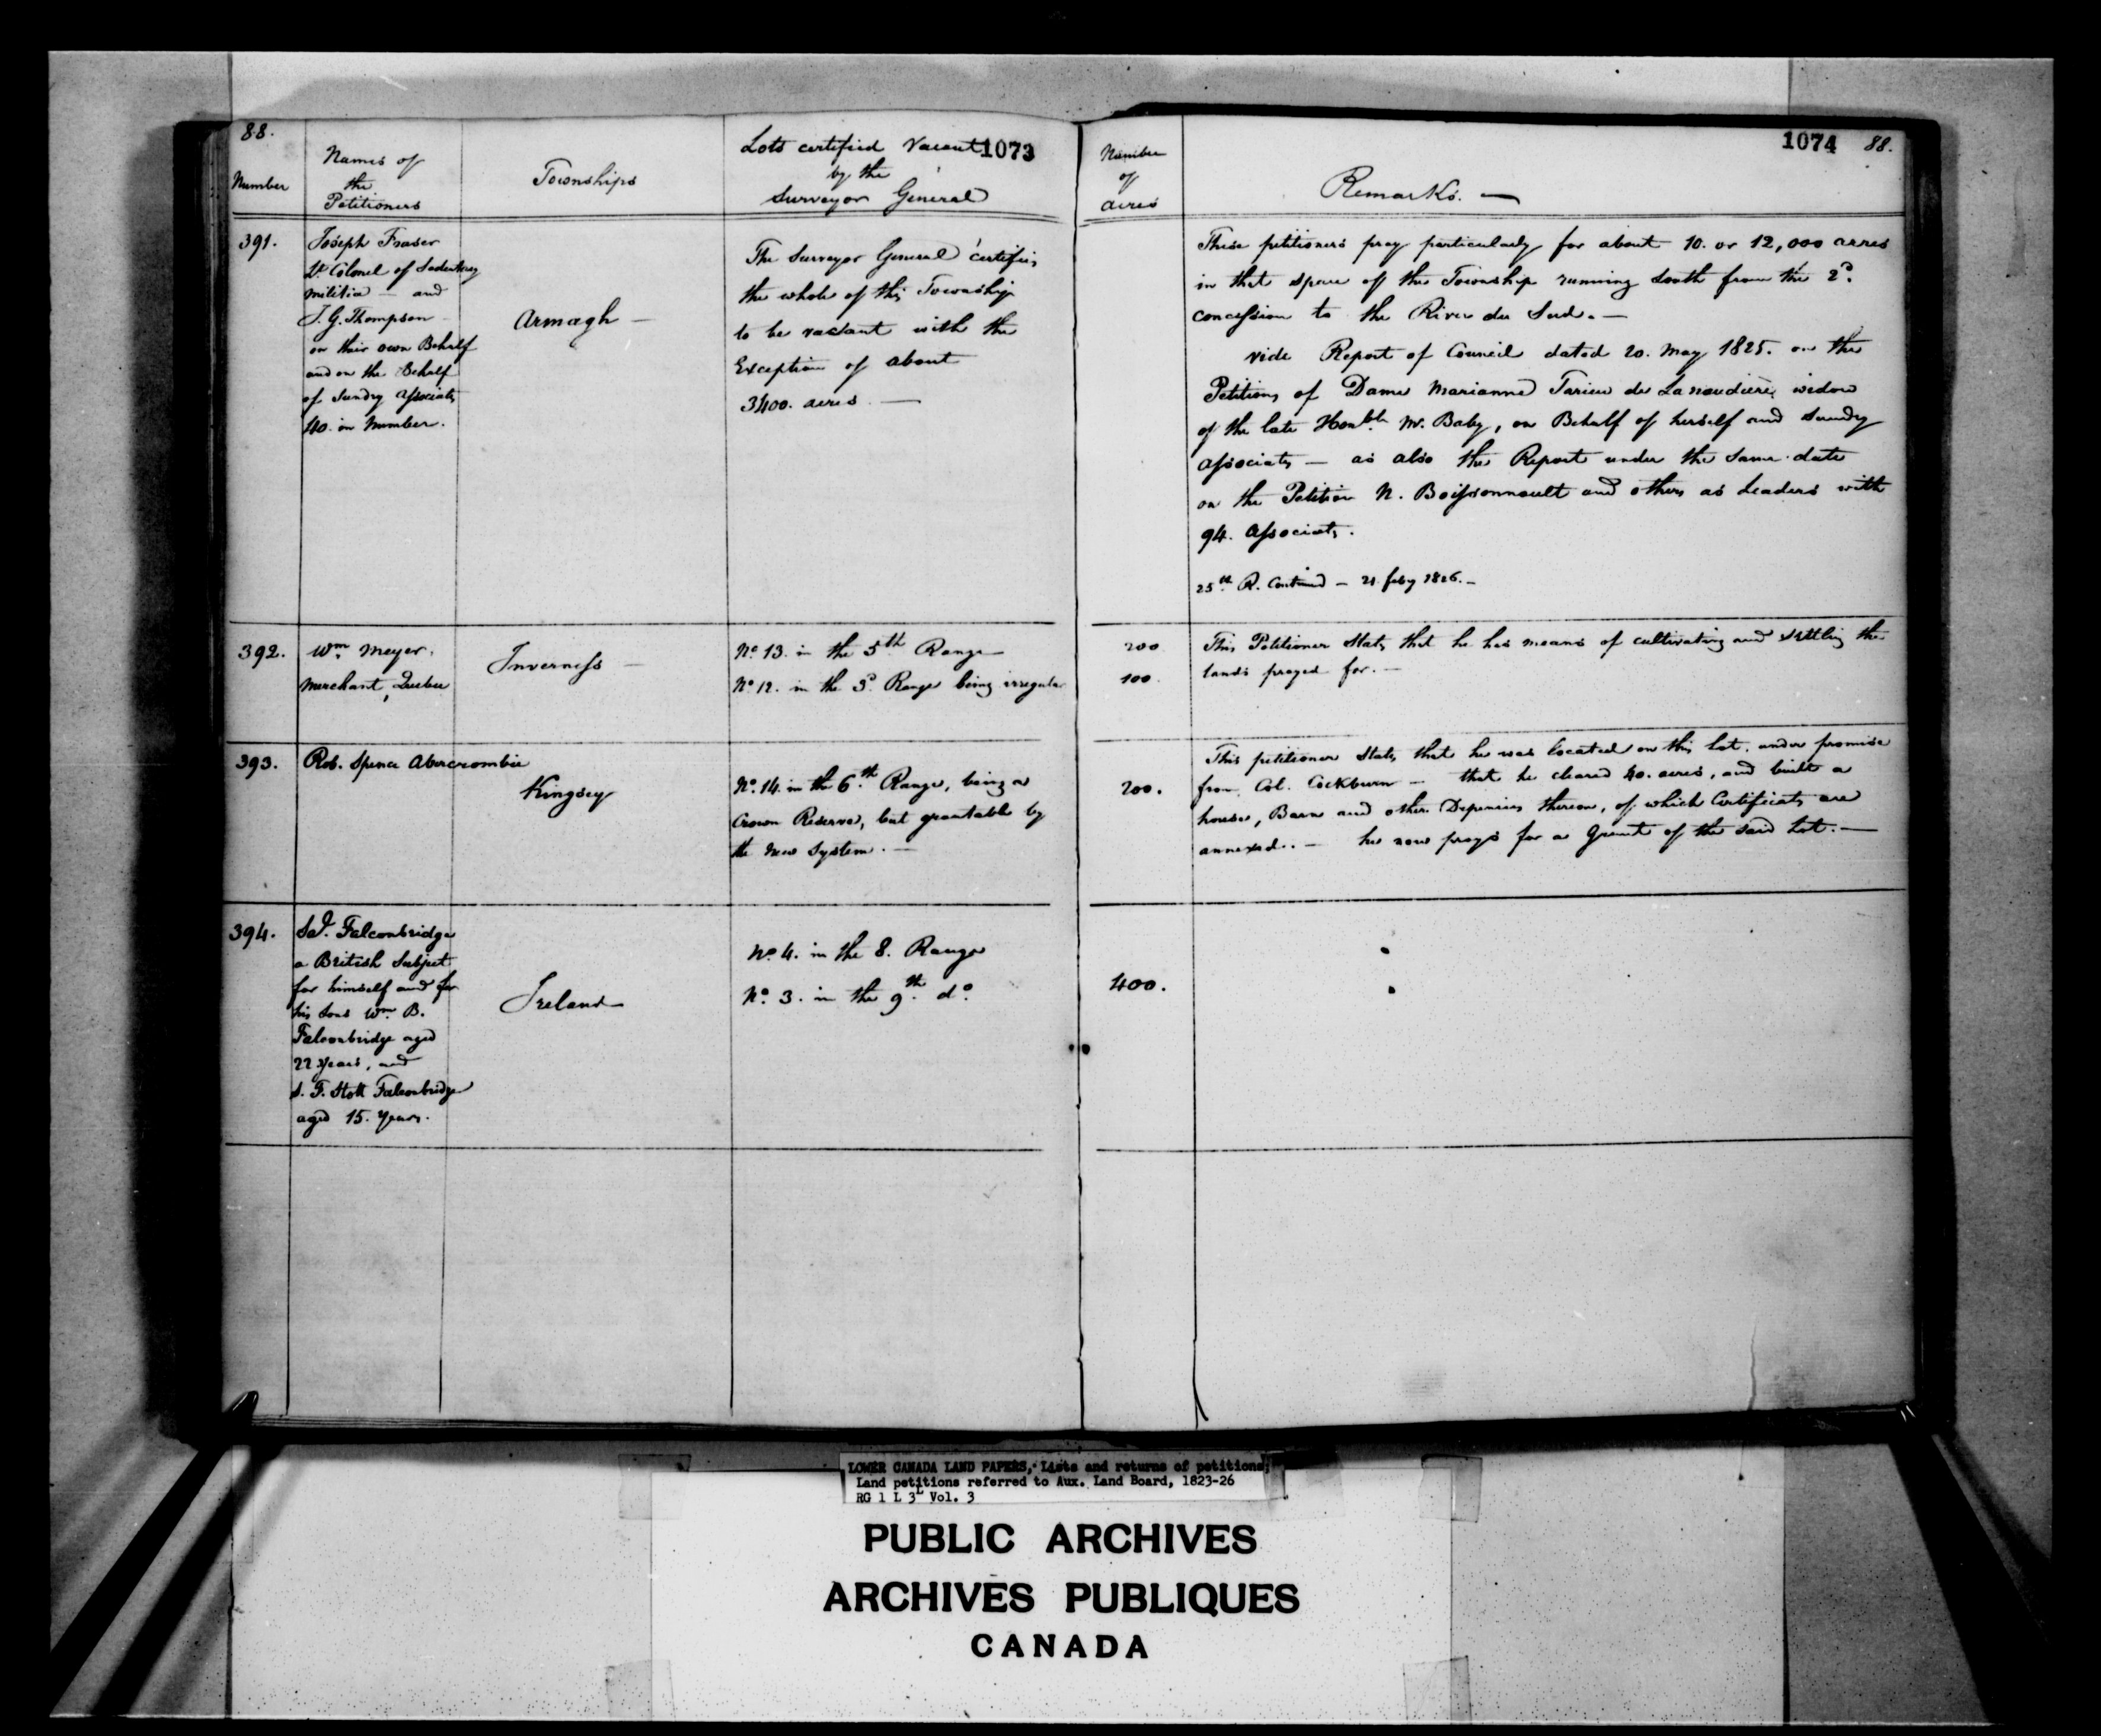 88.
Number
Names of
the
Petitioners
Townships
Lots certified Vacant
by the
Surveyor General
1073
Number
of
acres
Remarks. —
1074
88.
391.
Joseph Fraser
Lt. Colonel of
Militia — and
J. G. Thompson
on their own Behalf
and on the Behalf
of Sundry Associates
40. in Number.
Armagh —
The Surveyor General certifies
the whole of this Township
to be vacant with the
Exception of about
3400. acres —
These petitioners pray particularly for about 10. or 12,000 acres
in that space of the Township running South from the 2d.
concession to the River du Sud. —
vide Report of Council dated 20. May 1825. on the
Petitions of Dame Marianne Tarieu de Lanaudière, widow
of the late Honble Mr. Baby, on Behalf of herself and Sundry
Associates — as also the Report under the same date
on the Petition N. Boissonnault and others as Leaders with
94. Associates.
25th R. Continued — 21 feby 1826. —
392.
Wm. Meyer,
Merchant, Quebec
Inverness —
No. 13. in the 5th Range
No. 12. in the 3d. Range being irregular
200
100
This Petitioner States that he has means of cultivating and settling the
lands prayed for. —
393.
Rob. Spence Abercrombie
Kingsey
No. 14. in the 6th. Range, being a
Crown Reserve, but grantable by
the New System. —
200.
This petitioner States that he was located on this Lot. under promise
from Col. Cockburn — that he cleared 40. acres, and built a
house, Barn and other Depencies thereon, of which Certificates are
annexed. — he now prays for a Grant of the said Lot. —
394.
Sal. Falconbridge
a British Subject
for himself and for
his Sons Wm. B.
Falconbridge aged
22 Years, and
S. F. Stott Falconbridge
aged 15. Years.
Ireland
No. 4. in the 8. Range
No. 3. in the 9th. do.
400.
LOWER CANADA LAND PAPERS, Lists and returns of petitions,
Land petitions referred to Aux. Land Board, 1823-26
RG 1 L 3L Vol. 3
PUBLIC ARCHIVES
ARCHIVES PUBLIQUES
CANADA